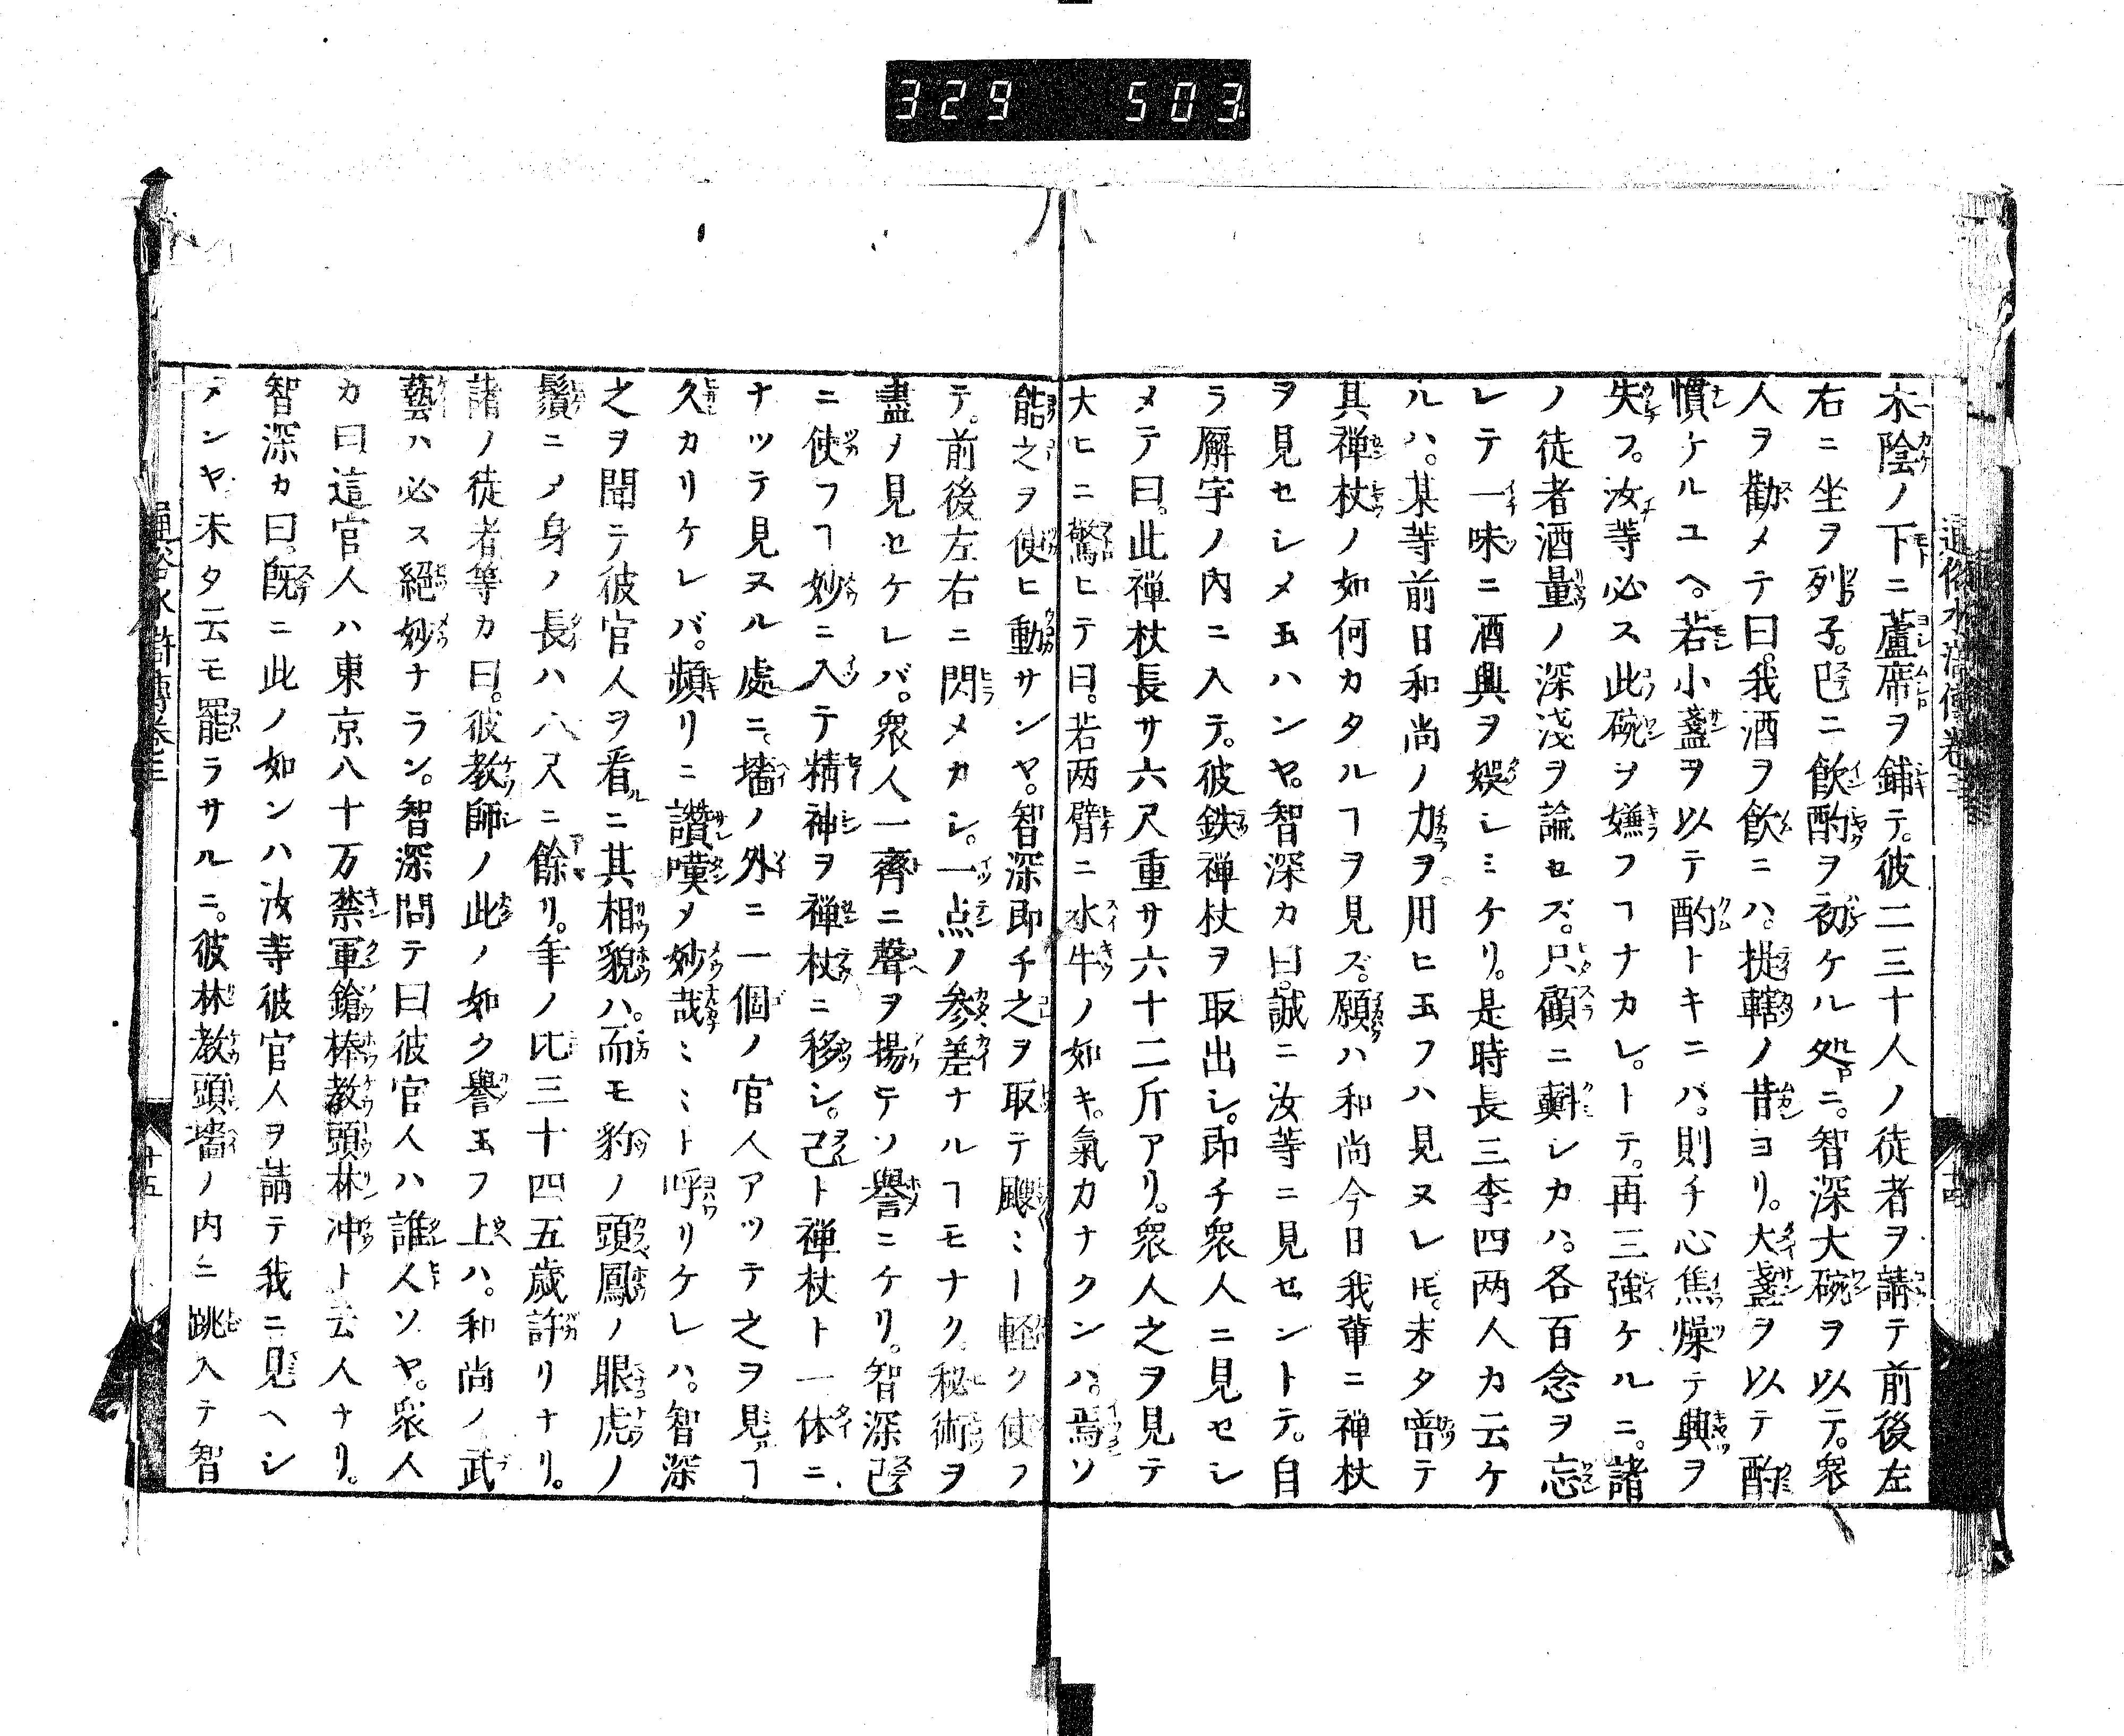 329 503
通俗水滸傳卷三
木陰ノ下ニ蘆席ヲ鋪テ。彼二三十人ノ徒者ヲ請テ前後左
右ニ坐ヲ列子。已ニ飲酌ヲ初ケル処ニ。智深大碗ヲ以テ。衆
人ヲ勸メテ曰。我酒ヲ飲ニハ。搓轄ノ昔ヨリ。大盞ヲ以テ酌
慣ケルユヘ。若小盞ヲ以テ酌トキニバ。則チ心焦燥テ興ヲ
失フ。汝等必ス此碗ヲ嫌フヿナカレ。トテ。再三強ケルニ。諸
ノ徒者酒量ノ深淺ヲ論セズ。只顧ニ斟レカハ。各百念ヲ忘
レテ一味ニ酒興ヲ娯シミケリ。是時長三李四两人カ云ケ
ルハ。某等前日和尚ノ力ヲ用ヒ玉フハ見ヌレ𪜈。未タ曽テ
其禅杖ノ如何カタルヿヲ見ズ。願ハ和尚今日我軰ニ禅杖
ヲ見セシメ玉ハンヤ。智深カ曰。誠ニ汝等ニ見セントテ。自
ラ廨宇ノ内ニ入テ。彼鉄禅杖ヲ取出シ。即チ衆人ニ見セシ
メテ曰。此禅杖長サ六尺重サ六十二斤アリ。衆人之ヲ見テ
大ヒニ驚ヒテ曰。若两臂ニ水牛ノ如キ。氣力ナクンハ。焉ソ
能之ヲ使ヒ動サンヤ。智深即チ之ヲ取テ颼ミー軽ク使フ
テ。前後左右ニ閃メカシ。一点ノ参差ナルヿモナク。秘術ヲ
盡ノ見セケレバ。衆人一齊ニ聲ヲ揚テソ譽ニケリ。智深已
ニ使フヿ妙ニ入テ精神ヲ禅杖ニ移シ。己ト禅杖ト一休ニ
ナツテ見ヌル處ニ、墻ノ外ニ一個ノ官人アツテ之ヲ見ヿ
久カリケレバ。頻リニ讃嘆メ妙哉ミミト呼リケレハ。智深
之ヲ聞テ彼官人ヲ看ニ其相貌ハ。而モ豹ノ頭鳳ノ眼虎ノ
鬚ニメ身ノ長ハ八尺ニ餘リ。年ノ比三十四五歳許リナリ。
諸ノ徒者等カ曰。彼教師ノ此ノ如ク譽玉フ上ハ。和尚ノ武
藝ハ必ス絕妙ナラン。智深問テ曰彼官人ハ誰人ソヤ。衆人
カ曰這官人ハ東京八十万禁軍鎗棒教頭林冲ト云人ナリ。
智深カ曰。既ニ此ノ如ンハ汝等彼官人ヲ請テ我ニ見ヘシ
メンヤ。未タ云モ罷ラサルニ。彼林教頭墻ノ内ニ跳入テ智
通俗水滸傳卷三
十五